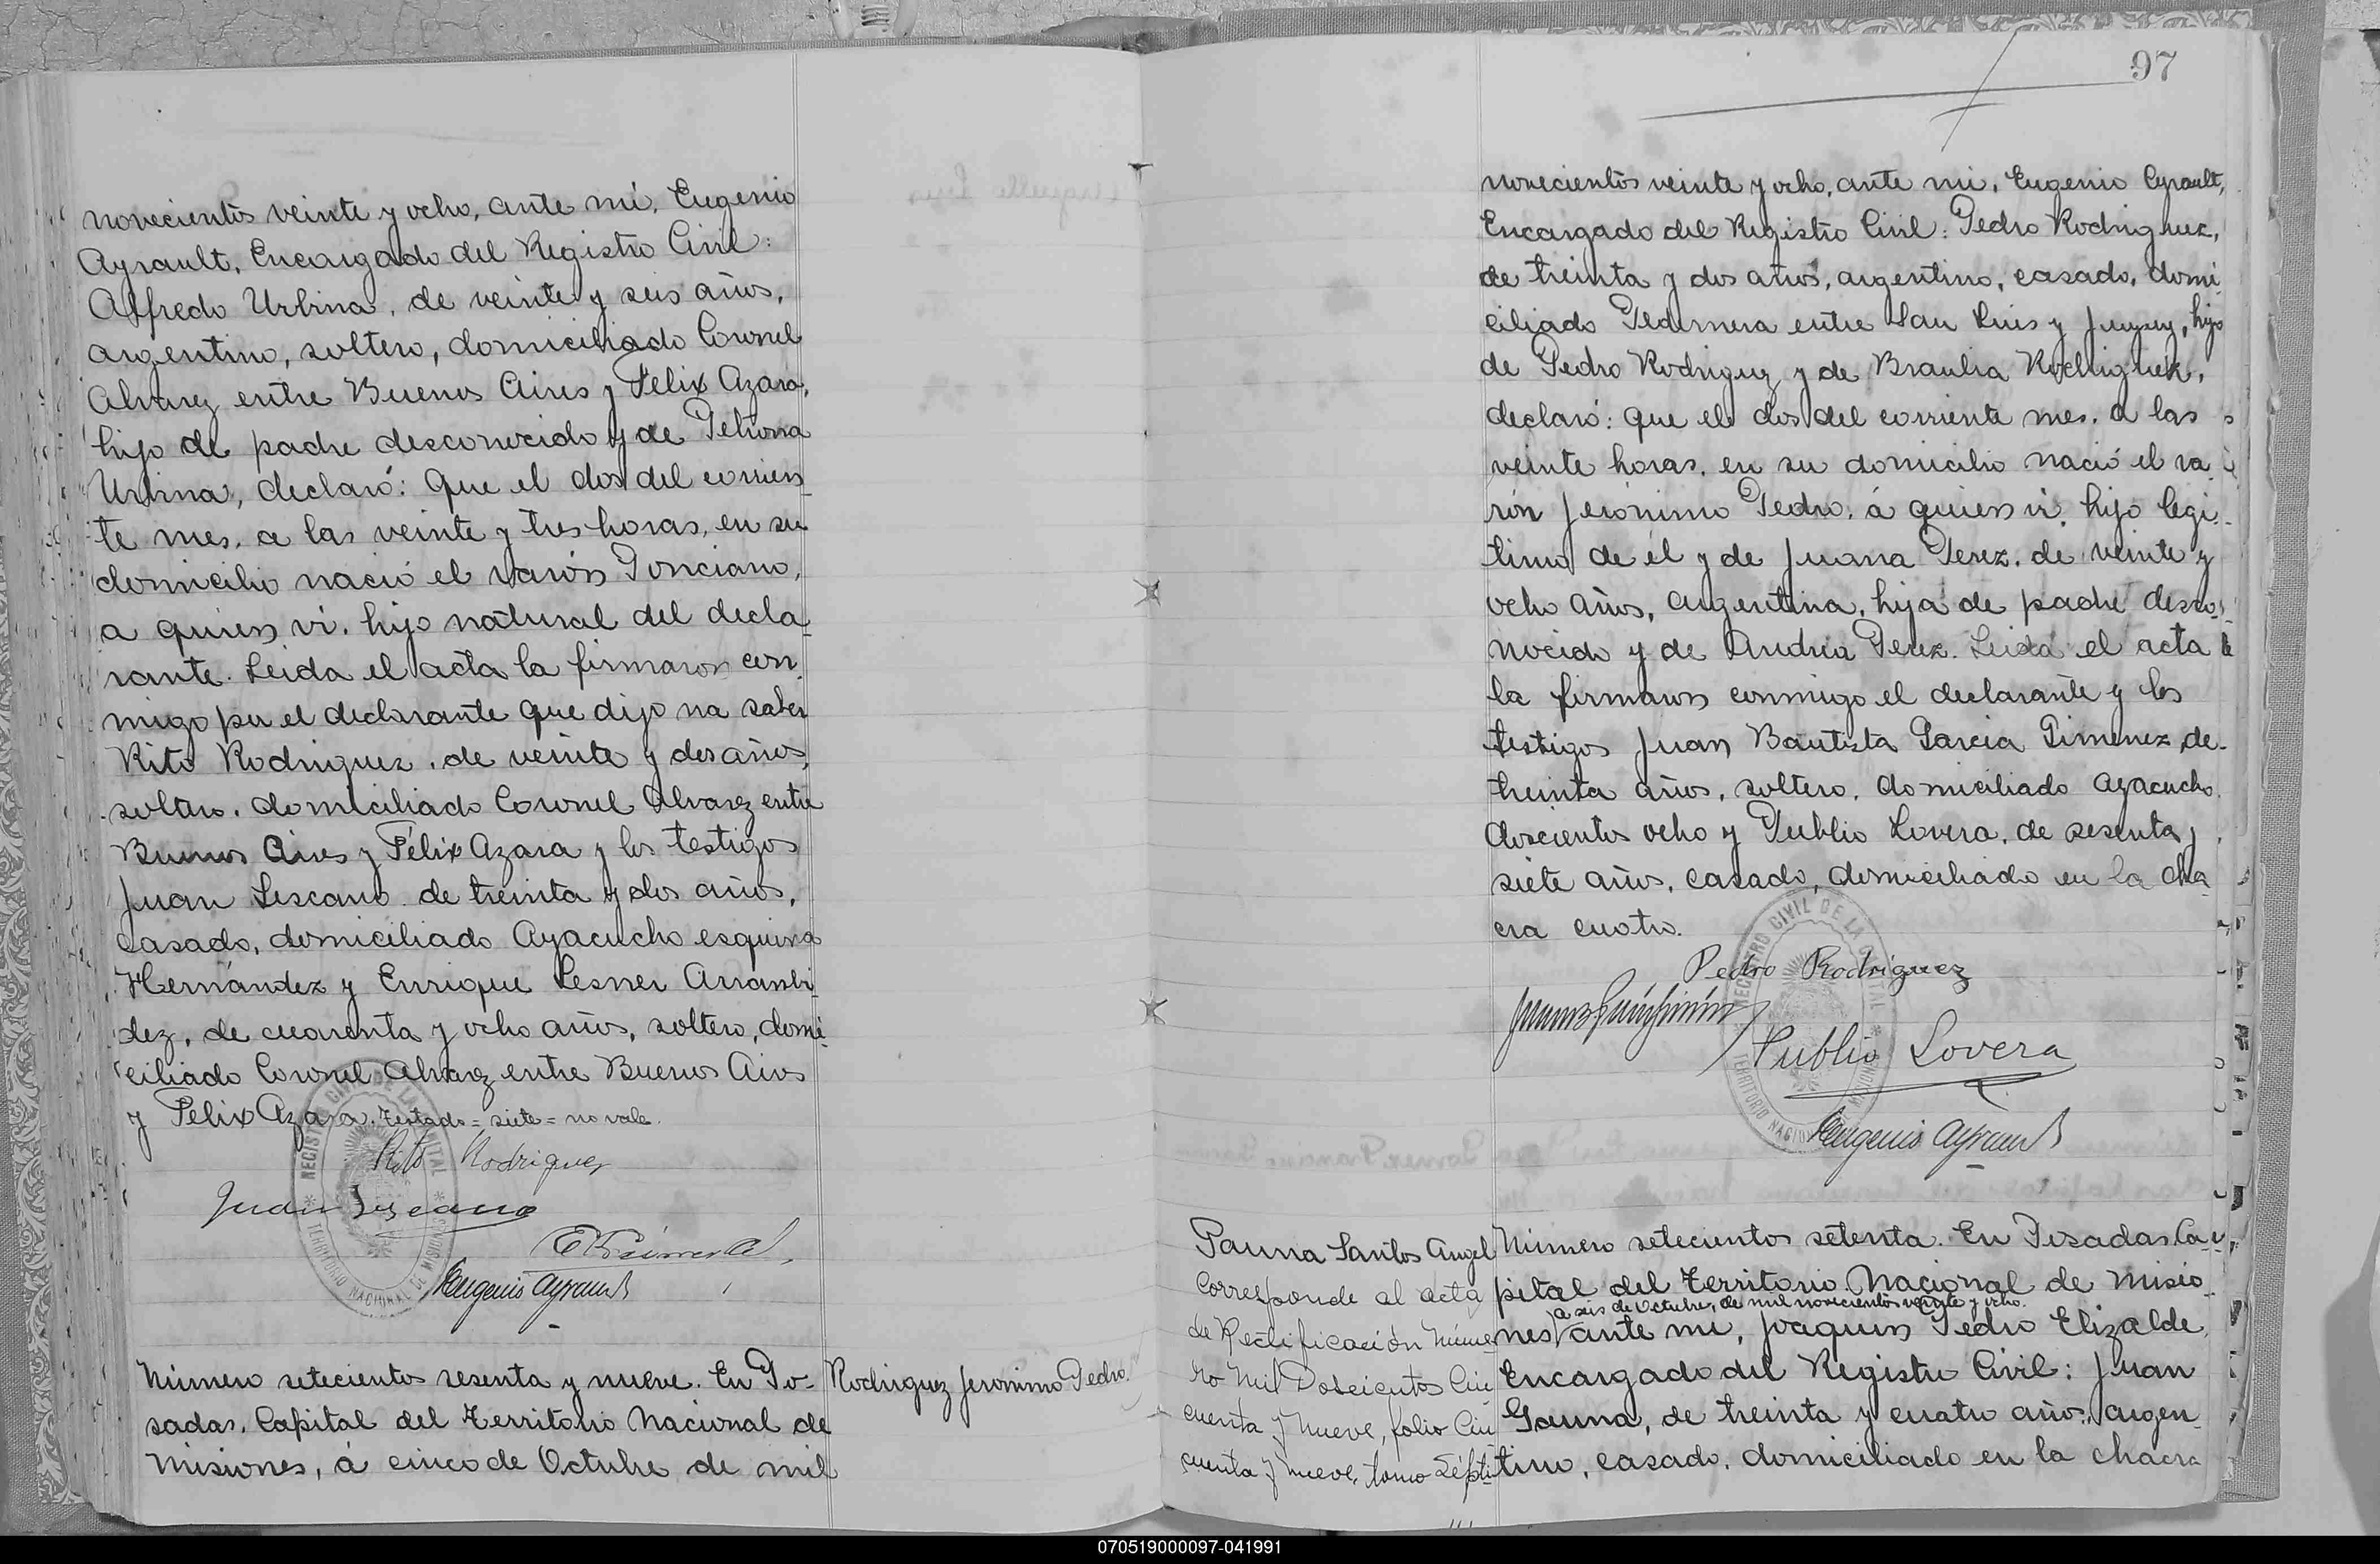 novecientos veinte y ocho, ante mí, Eugenio
Ayrault, Encargado del Registro Civil:
Alfredo Urbina, de veinte y seis años,
argentino, soltero, domiciliado Coronel
Alvarez entre Buenos Aires y Félix Azara,
hijo de padre desconocido y de Petrona
Urbina, declaró: Que el dos del corrien-
te mes, a las veinte y tres horas, en su
domicilio nació el varón Ponciano,
a quien vi, hijo natural del decla-
rante. Leida el acta la firmaron con
migo por el declarante que dijo no saber
Rito Rodriguez, de veinte y dos años,
soltero, domiciliado Coronel Alvarez entre
Buenos Aires y Félix Azara y los testigos
Juan Lescano de treinta y dos años,
casado, domiciliado Ayacucho esquina
Hernández y Enrique Lesner Arrambi
dez, de cuarenta y ocho años, soltero, domi-
ciliado Coronel Alvarez entre Buenos Aires
y Félix Azara. Testado = siete = no vale.
Rito Rodriguez
Juan Lescano
Eugenio Ayrault
Número setecientos sesenta y nueve. En Po-
sadas, Capital del Territorio Nacional de
Misiones, á cinco de Octubre de mil
Rodriguez Jeronimo Pedro.
97
novecientos veinte y ocho, ante mi, Eugenio Ayrault,
Encargado del Registro Civil: Pedro Rodriguez,
de treinta y dos años, argentino, casado, domi
ciliado Pedernera entre San Luis y Jujuy, hijo
de Pedro Rodriguez y de Braulia Rodriguez,
declaró: Que el dos del corriente mes, a las
veinte horas, en su domicilio nació el va
rón Jerónimo Pedro, á quien vi, hijo legi-
timo de él y de Juana Perez, de veinte y
ocho años, argentina, hija de padre desco-
nocido y de Andrea Perez. Leida el acta
la firmaron conmigo el declarante y los
testigos Juan Bautista Garcia Gimenez, de
treinta años, soltero, domiciliado Ayacucho
doscientos ocho y Publio Lovera, de sesenta y
siete años, casado, domiciliado en la cha
cra cuatro.
Pedro Rodriguez
Publio Lovera
Eugenio Ayrault
REGISTRO CIVIL DE LA CAPITAL
TERRITORIO NACIONAL DE MISIONES
Gauna Santos Angel
Corresponde al acta
de Rectificación Núme
ro Mil Doscientos Cin
cuenta y nueve, folio Cin
cuenta y nueve, tomo Sépti
Número setecientos setenta. En Posadas, Ca-
pital del Territorio Nacional de Misio-
a seis de Octubre, de mil novecientos veinte y ocho.
nes, ante mi, Joaquin Pedro Elizalde,
Encargado del Registro Civil: Juan
Gauna, de treinta y cuatro años, argen-
tino, casado, domiciliado en la chacra
070519000097-041991